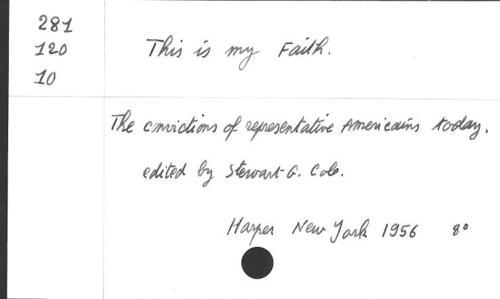 281
120
10
This is my Faith.
The convictions of representative Americains today.
edited by Stewart G. Cole.
Harper New York 1956 8°